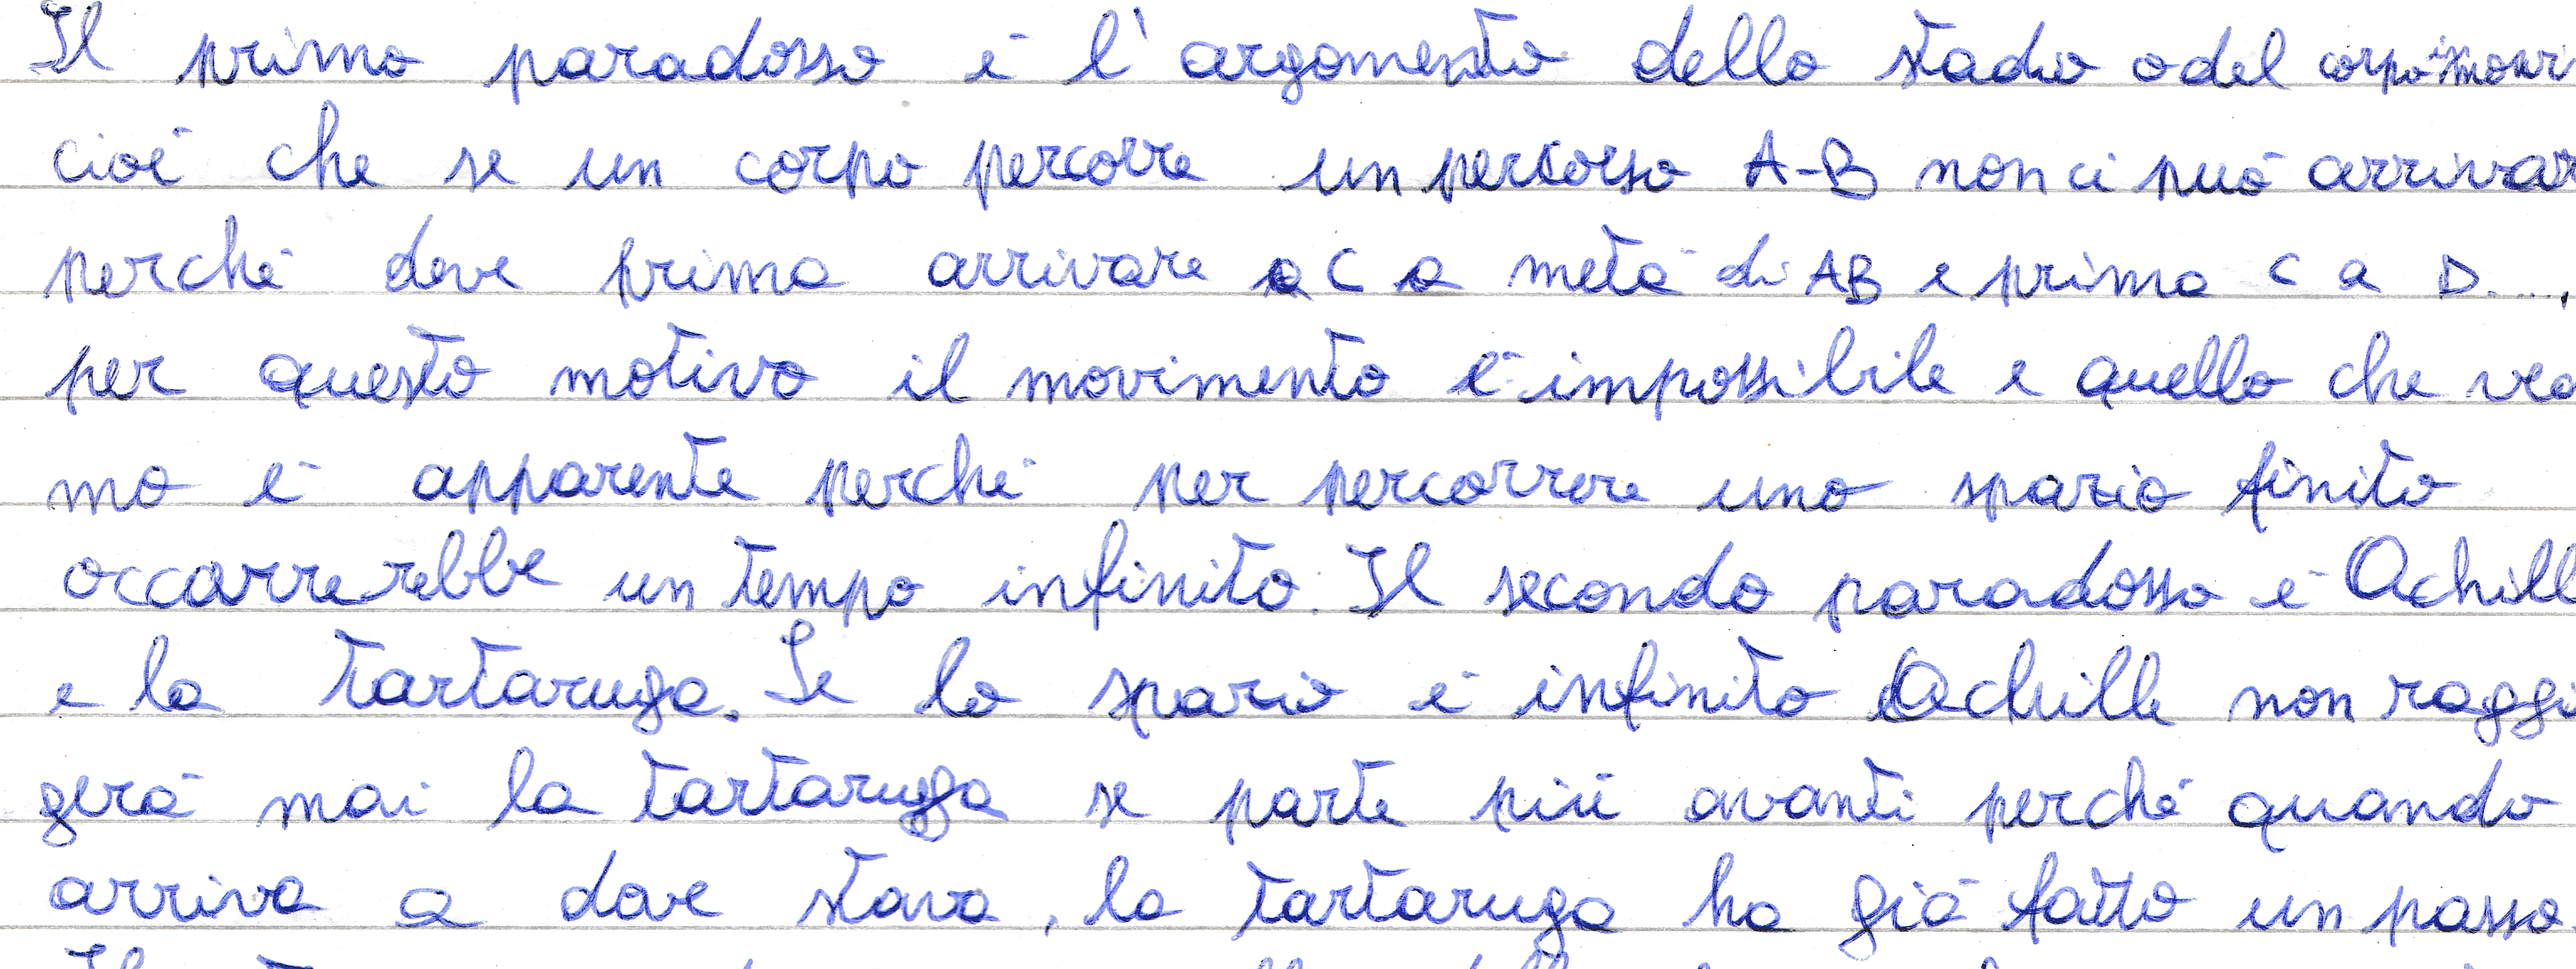 Il primo paradosso è l'argomento dello stadio o del corpo
cioè che se un corpo percorre un percorso A-B non ci può arrivar
perché deve prima arrivare a C a metà di AB e prima C a D....,
per questo motivo il movimento è impossibile e quello che ved
mo è apparente perché per percorrere uno spazio finito
occorrerebbe un tempo infinito. Il secondo paradosso è Achill
e la tartaruga. Se lo spazio è infinito Achille non raggi
gerà mai la tartaruga se parte più avanti perché quando
arriva a dove stava, la tartaruga ha già fatto un passo.